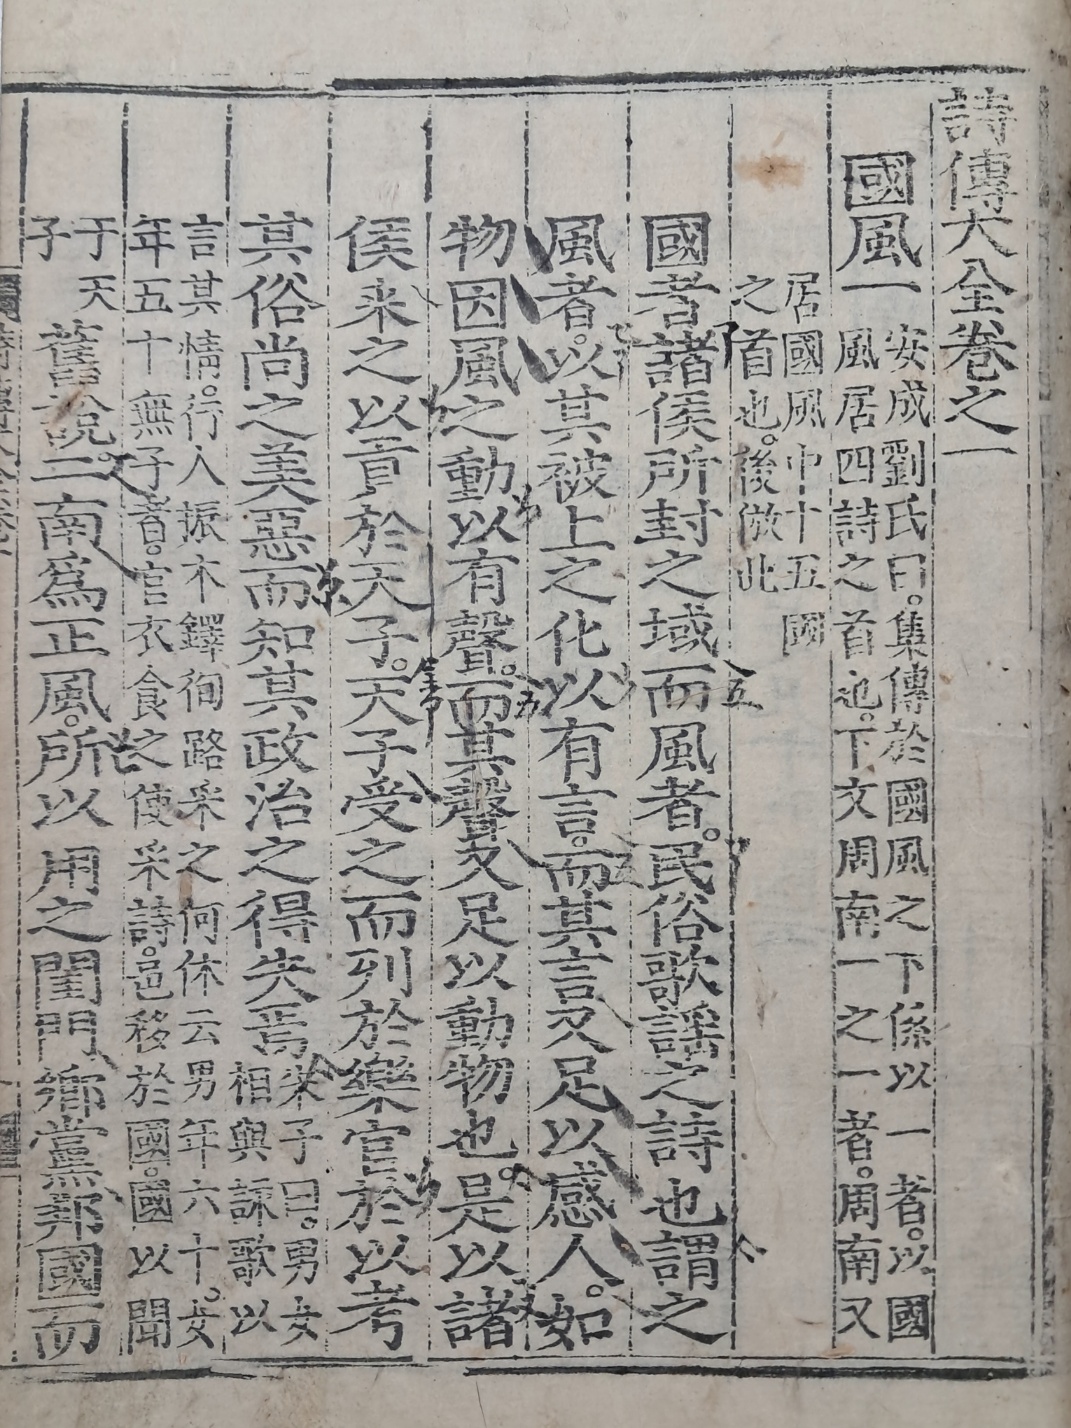 詩傳大全卷之一
國風一
安成劉氏曰。集傳於國風之下係以一者。以國
風居四詩之首也。下文周南一之一者。周南又
居國風中十五國
之首也。後倣此
國者諸侯所封之域而風者。民俗歌謡之詩也謂之
風者。以其被上之化以有言。而其言又足以感人。如
物因風之動以有聲。而其聲又足以動物也。是以諸
侯来之以貢於天子。天子受之而列於樂官於以考
其俗尚之美惡而知其政治之得失焉
朱子曰。男女
相與諫歌以
言其情。行人振木鐸徇路采之何休云男年六十。女
年五十無子者。官衣食之使采詩。邑移於國。國以聞
于天
子
舊說二南爲正風。所以用之閨門鄕黨邦國而